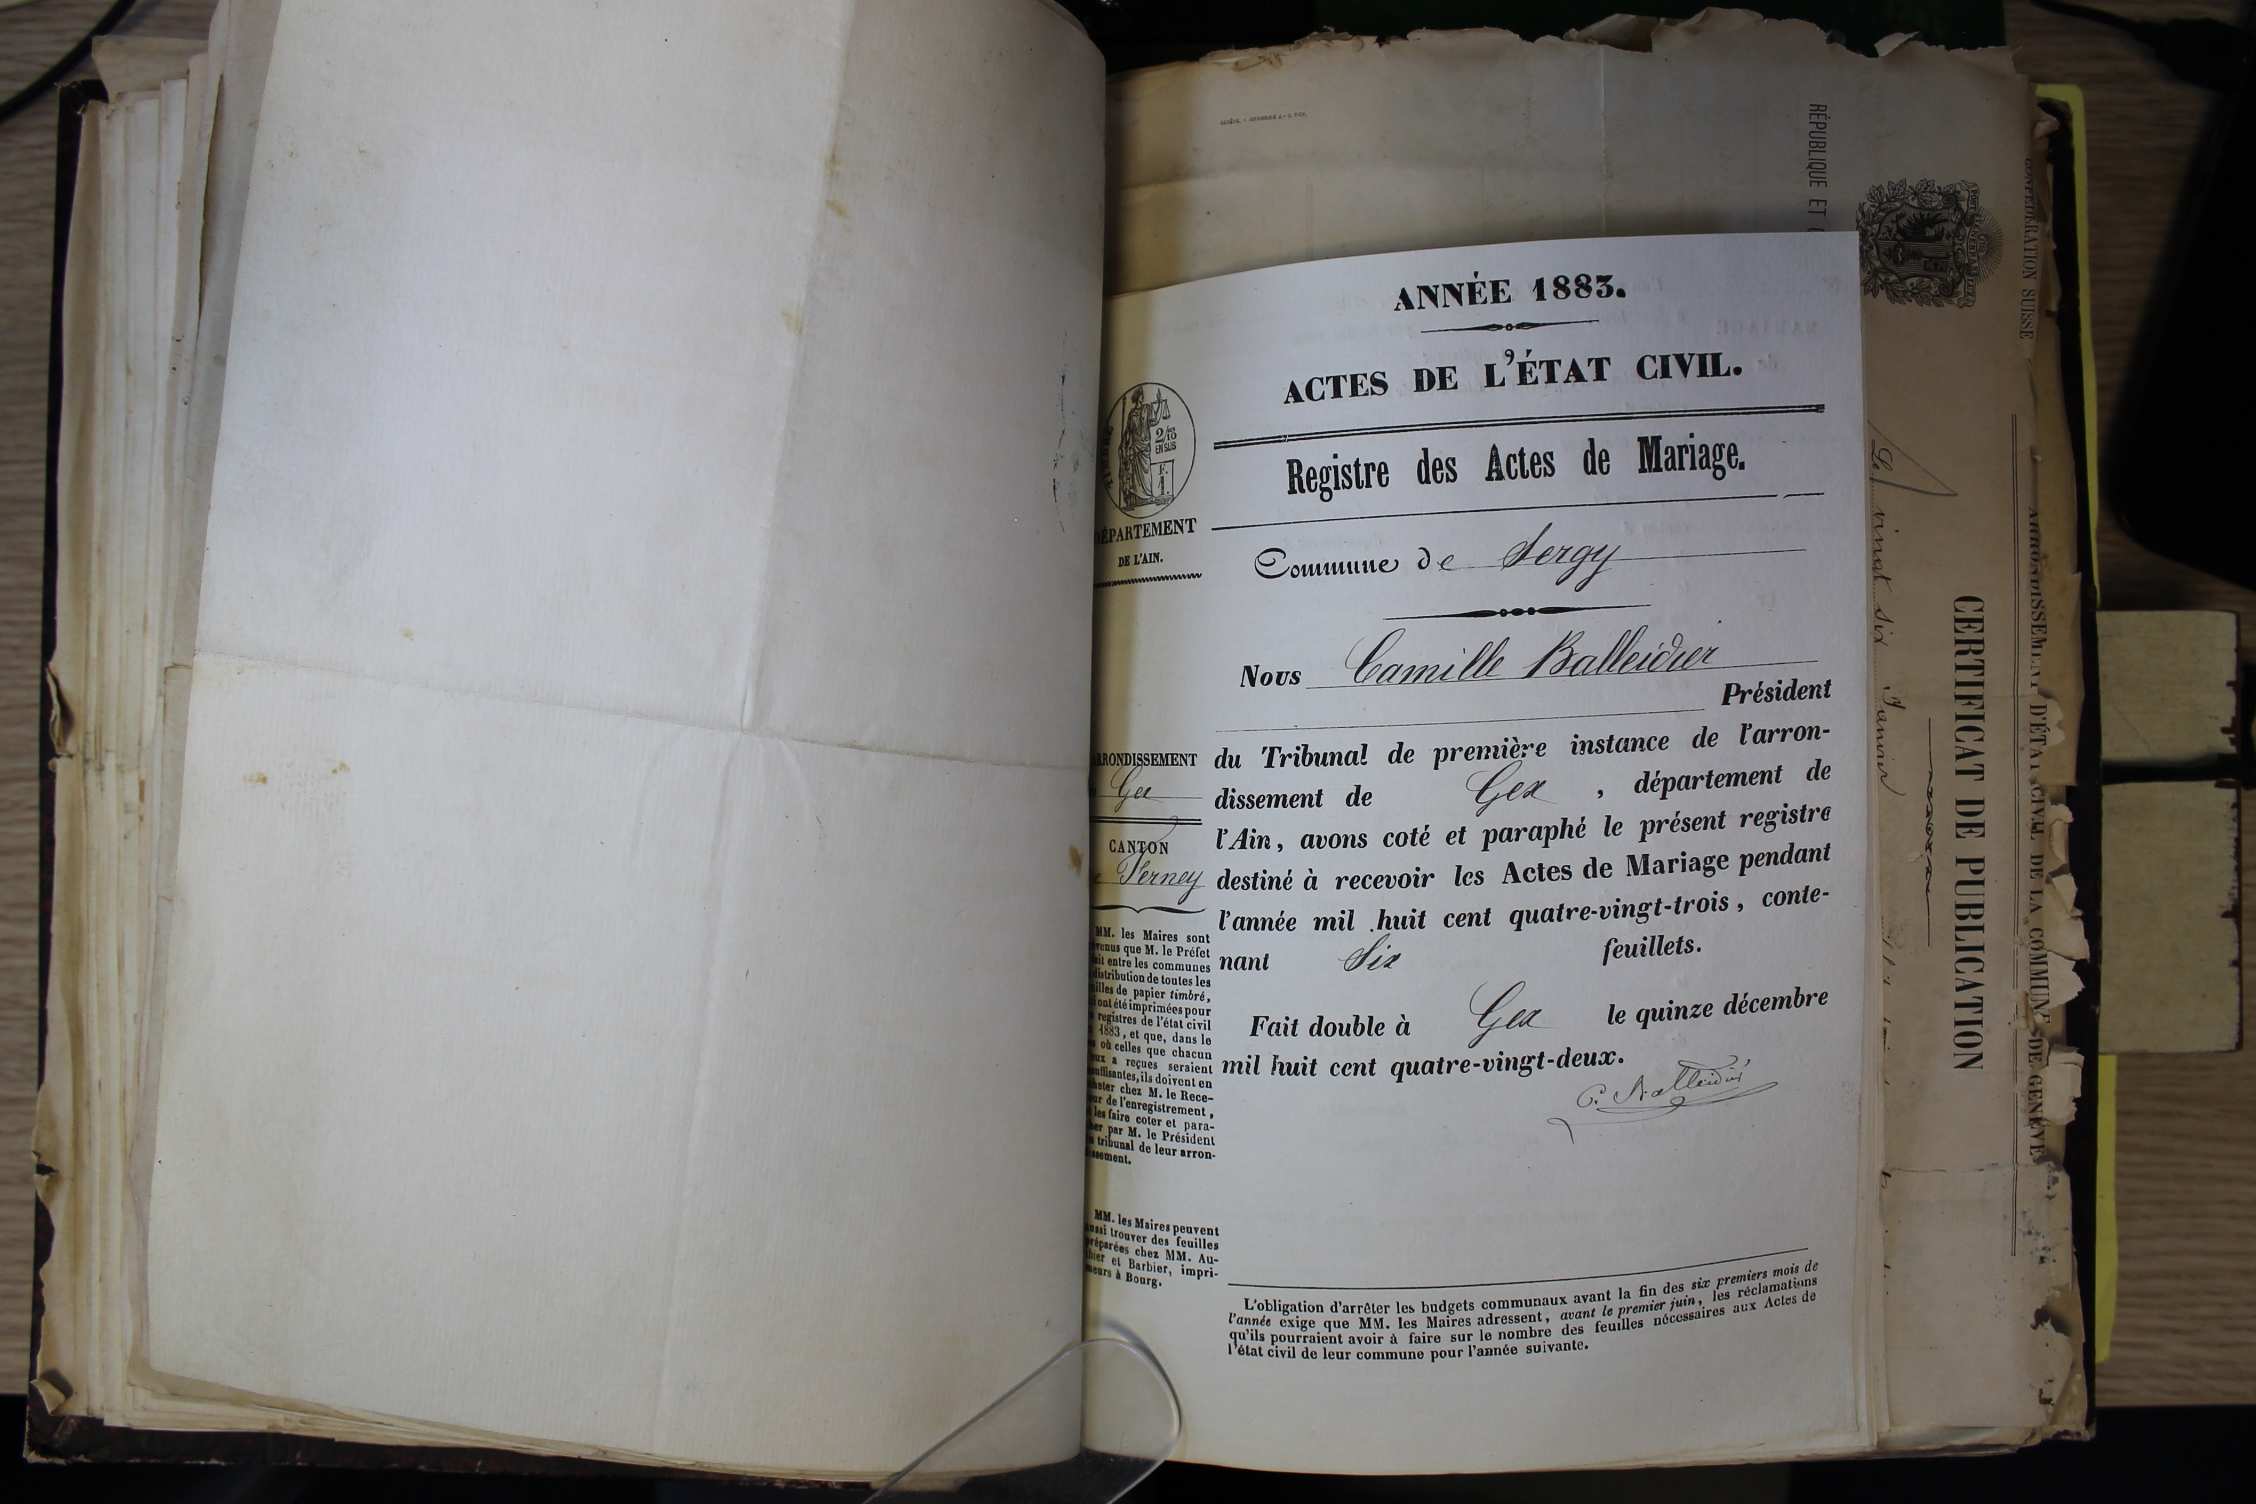 ANNÉE 1883.
ACTES DE L'ÉTAT CIVIL.
Registre des Actes de Mariage.
Commune de Sergy
Nous Camille Balleidier
Président
du Tribunal de première instance de l'arron-
dissement de Gex , département de
l'Ain, avons coté et paraphé le présent registre
destiné à recevoir les Actes de Mariage pendant
l'année mil huit cent quatre-vingt-trois, conte-
nant Six feuillets.
Fait double à Gex le quinze décembre
mil huit cent quatre-vingt-deux.
C. Balleidier
L'obligation d'arrêter les budgets communaux avant la fin des six premiers mois de
l'année exige que MM. les Maires adressent, avant le premier juin, les réclamations
qu'ils pourraient avoir à faire sur le nombre des feuilles nécessaires aux Actes de
l'état civil de leur commune pour l'année suivante.
2/10
EN SUS
F.
1.
DÉPARTEMENT
DE L'AIN.
ARRONDISSEMENT
Gex
CANTON
Ferney
MM. les Maires sont
venus que M. le Préfet
fait entre les communes
distribution de toutes les
feuilles de papier timbré,
ont été imprimées pour
registres de l'état civil
1883, et que, dans le
où celles que chacun
eux a reçues seraient
insuffisantes, ils doivent en
acheter chez M. le Rece-
veur de l'enregistrement,
les faire coter et para-
pher par M. le Président
tribunal de leur arron-
dissement.
MM. les Maires peuvent
aussi trouver des feuilles
préparées chez MM. Au-
thier et Barbier, impri-
meurs à Bourg.
RÉPUBLIQUE ET
CONFÉDÉRATION SUISSE
ARRONDISSEMENT D'ÉTAT CIVIL DE LA COMMUNE DE GENÈVE
CERTIFICAT DE PUBLICATION
Le vingt six Janvier